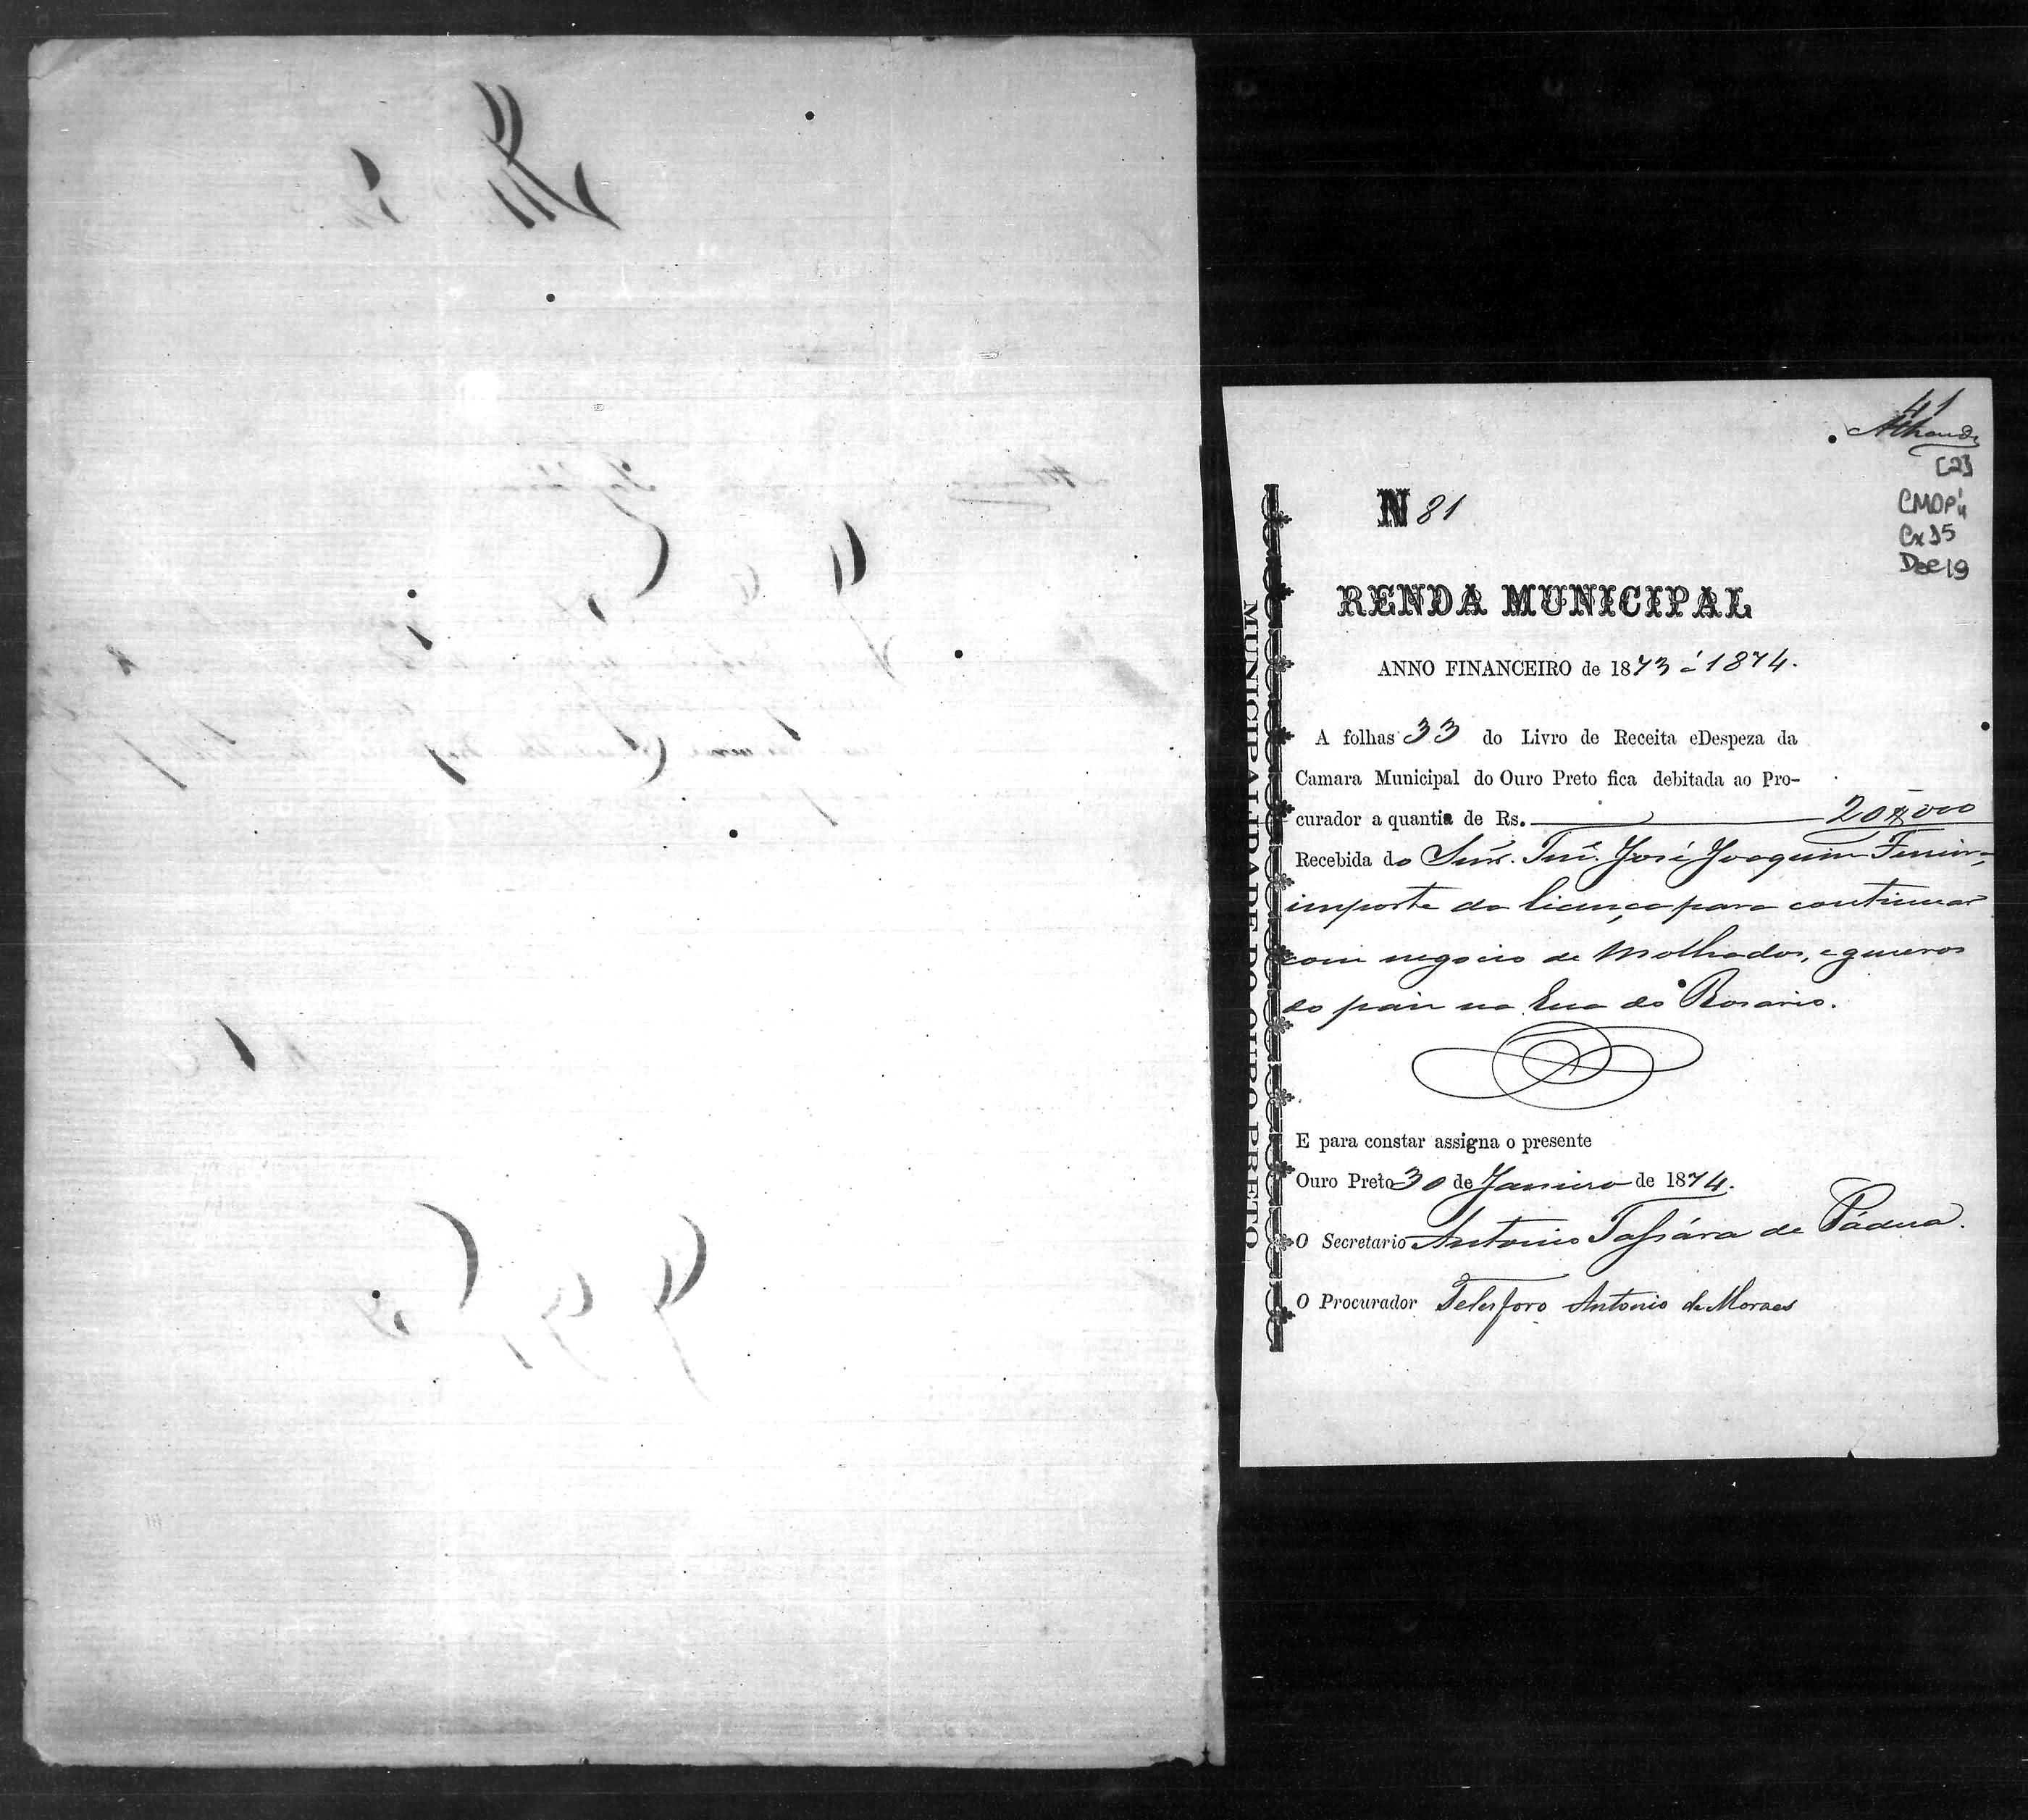 41
[2]
CMOP
Cx 15
Doc 19
N 81
RENDA MUNICIPAL
ANNO FINANCEIRO de 1873 á 1874.
A folhas 33 do Livro de Receita eDespeza da
Camara Municipal do Ouro Preto fica debitada ao Pro-
curador a quantia de Rs. 20$000
Recebida do Snr. Tne. José Joaquim Ferreira,
importe da licença para continuar
com negocio de molhados, e generos
do paiz na Rua do Rosario.
E para constar assigna o presente
Ouro Preto 30 de Janeiro de 1874.
O Secretario Antonio Tassára de Pádua.
O Procurador Telesforo Antonio de Moraes
MUNICIPALIDADE DO OURO PRETO